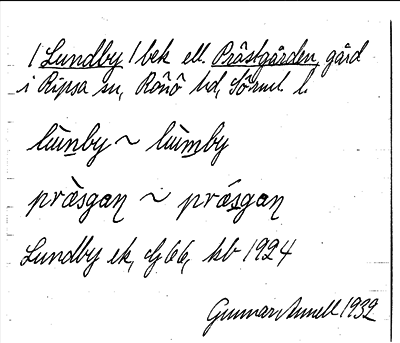 1 Lundby 1 bek ell. Prästgården, gård
i Ripsa sn, Rönö hd, Sörml. l.
lùnby ~ lùmby
præ̀sgaɳ ~ præ´sgaɳ
Lundby ek, dj 66, hb 1924
Gunnar Annell 1932